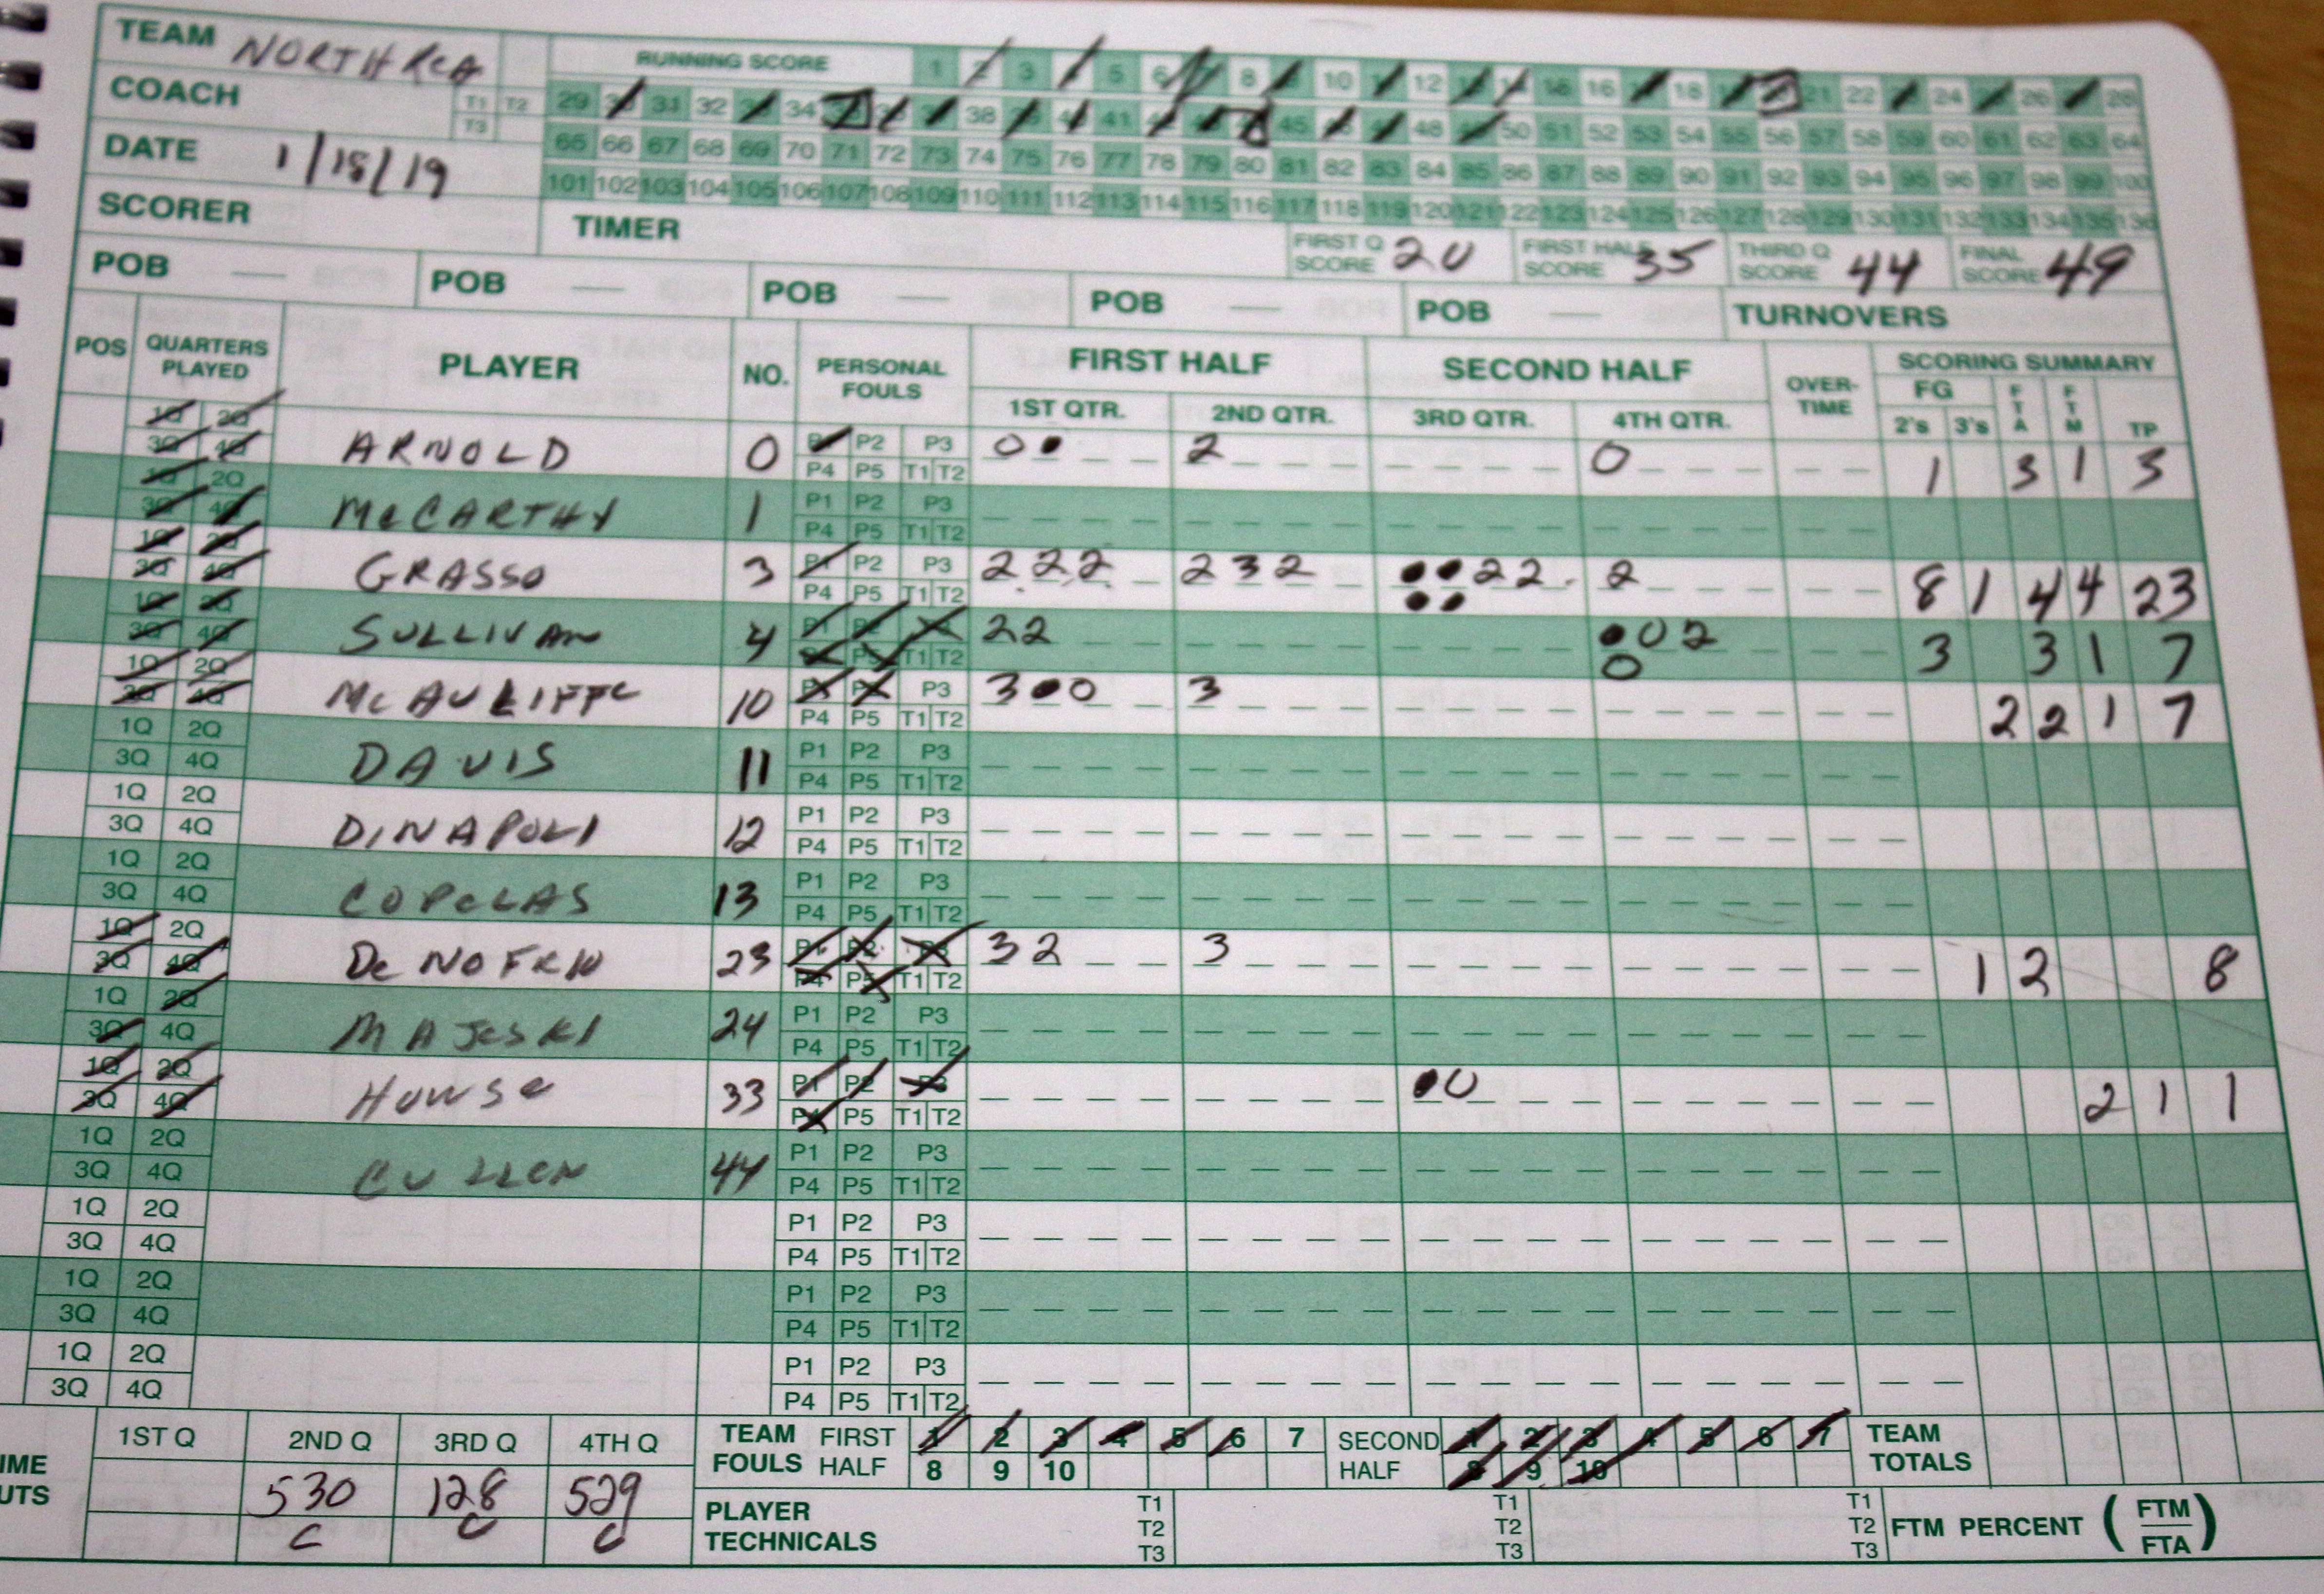 TEAM NORTH REA RUNNING SCORE 1 2 3 4 5 6 7 8 9 10 11 12 13 14 15 16 17 18 19 20 21 22 23 24 25 26 27 28
COACH T1 T2 T3 29 30 31 32 33 34 35 36 37 38 39 40 41 42 43 44 45 46 47 48 49 50 51 52 53 54 55 56 57 58 59 60 61 62 63 64
DATE 1/18/19 65 66 67 68 69 70 71 72 73 74 75 76 77 78 79 80 81 82 83 84 85 86 87 88 89 90 91 92 93 94 95 96 97 98 99 100
101 102 103 104 105 106 107 108 109 110 111 112 113 114 115 116 117 118 119 120 121 122 123 124 125 126 127 128 129 130 131 132 133 134 135 136
SCORER TIMER FIRST Q SCORE 20 FIRST HALF SCORE 35 THIRD Q SCORE 44 FINAL SCORE 49
POB — POB — POB — POB — POB — TURNOVERS
POS QUARTERS PLAYED PLAYER NO. PERSONAL FOULS FIRST HALF SECOND HALF OVER-TIME SCORING SUMMARY
1ST QTR. 2ND QTR. 3RD QTR. 4TH QTR. FG 2's 3's FTA FTM TP
1Q 2Q 3Q 4Q ARNOLD 0 P1 P2 P3 P4 P5 T1 T2 0 • 2 0 1 3 1 3
1Q 2Q 3Q 4Q McCARTHY 1 P1 P2 P3 P4 P5 T1 T2
1Q 2Q 3Q 4Q GRASSO 3 P1 P2 P3 P4 P5 T1 T2 2 2 2 2 3 2 • • 2 2 • • 2 8 1 4 4 23
1Q 2Q 3Q 4Q SULLIVAN 4 P1 P2 P3 P4 P5 T1 T2 2 2 • 0 2 0 3 3 1 7
1Q 2Q 3Q 4Q McAULIFFE 10 P1 P2 P3 P4 P5 T1 T2 3 • 0 3 2 2 1 7
1Q 2Q 3Q 4Q DAVIS 11 P1 P2 P3 P4 P5 T1 T2
1Q 2Q 3Q 4Q DINAPOLI 12 P1 P2 P3 P4 P5 T1 T2
1Q 2Q 3Q 4Q COPELAS 13 P1 P2 P3 P4 P5 T1 T2
1Q 2Q 3Q 4Q DeNOFRIO 23 P1 P2 P3 P4 P5 T1 T2 3 2 3 1 2 8
1Q 2Q 3Q 4Q MAJESKI 24 P1 P2 P3 P4 P5 T1 T2
1Q 2Q 3Q 4Q HOWSE 33 P1 P2 P3 P4 P5 T1 T2 • 0 2 1 1
1Q 2Q 3Q 4Q 44 P1 P2 P3 P4 P5 T1 T2
1Q 2Q 3Q 4Q P1 P2 P3 P4 P5 T1 T2
1Q 2Q 3Q 4Q P1 P2 P3 P4 P5 T1 T2
1Q 2Q 3Q 4Q P1 P2 P3 P4 P5 T1 T2
IME UTS 1ST Q 2ND Q 3RD Q 4TH Q
530 128 529
C C C
TEAM FOULS FIRST HALF 1 2 3 4 5 6 7 8 9 10 SECOND HALF 1 2 3 4 5 6 7 8 9 10 TEAM TOTALS
PLAYER TECHNICALS T1 T2 T3 T1 T2 T3 T1 T2 T3 FTM PERCENT (FTM/FTA)